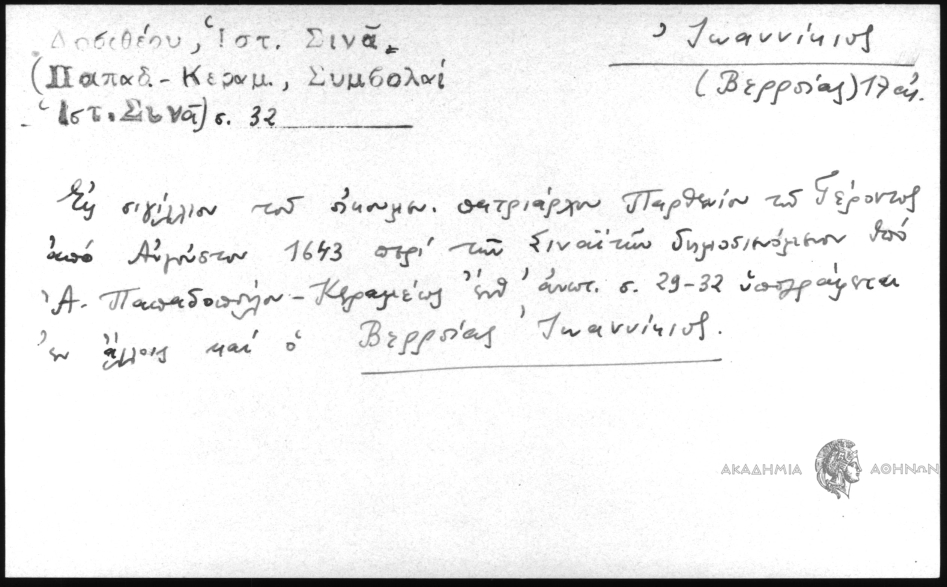 Δοσιθέου, Ἱστ. Σινᾶ.
(Παπαδ.-Κεραμ., Συμβολαί
Ἱστ. Σινᾶ) σ. 32
Ἰωαννίκιος
(Βερροίας) 17 αἰ.
Εἰς σιγίλλιον τοῦ οἰκουμ. πατριάρχου Παρθενίου τοῦ Γέροντος
ἀπό Αὐγούστου 1643 περί τῶν Σιναϊτῶν δημοσιευόμενον ὑπό
Ἀ. Παπαδοπούλου-Κεραμέως ἔνθ' ἀνωτ. σ. 29-32 ὑπογράφεται
ἐν ἄλλοις καί ὁ Βερροίας Ἰωαννίκιος.
ΑΚΑΔΗΜΙΑ ΑΘΗΝΩΝ